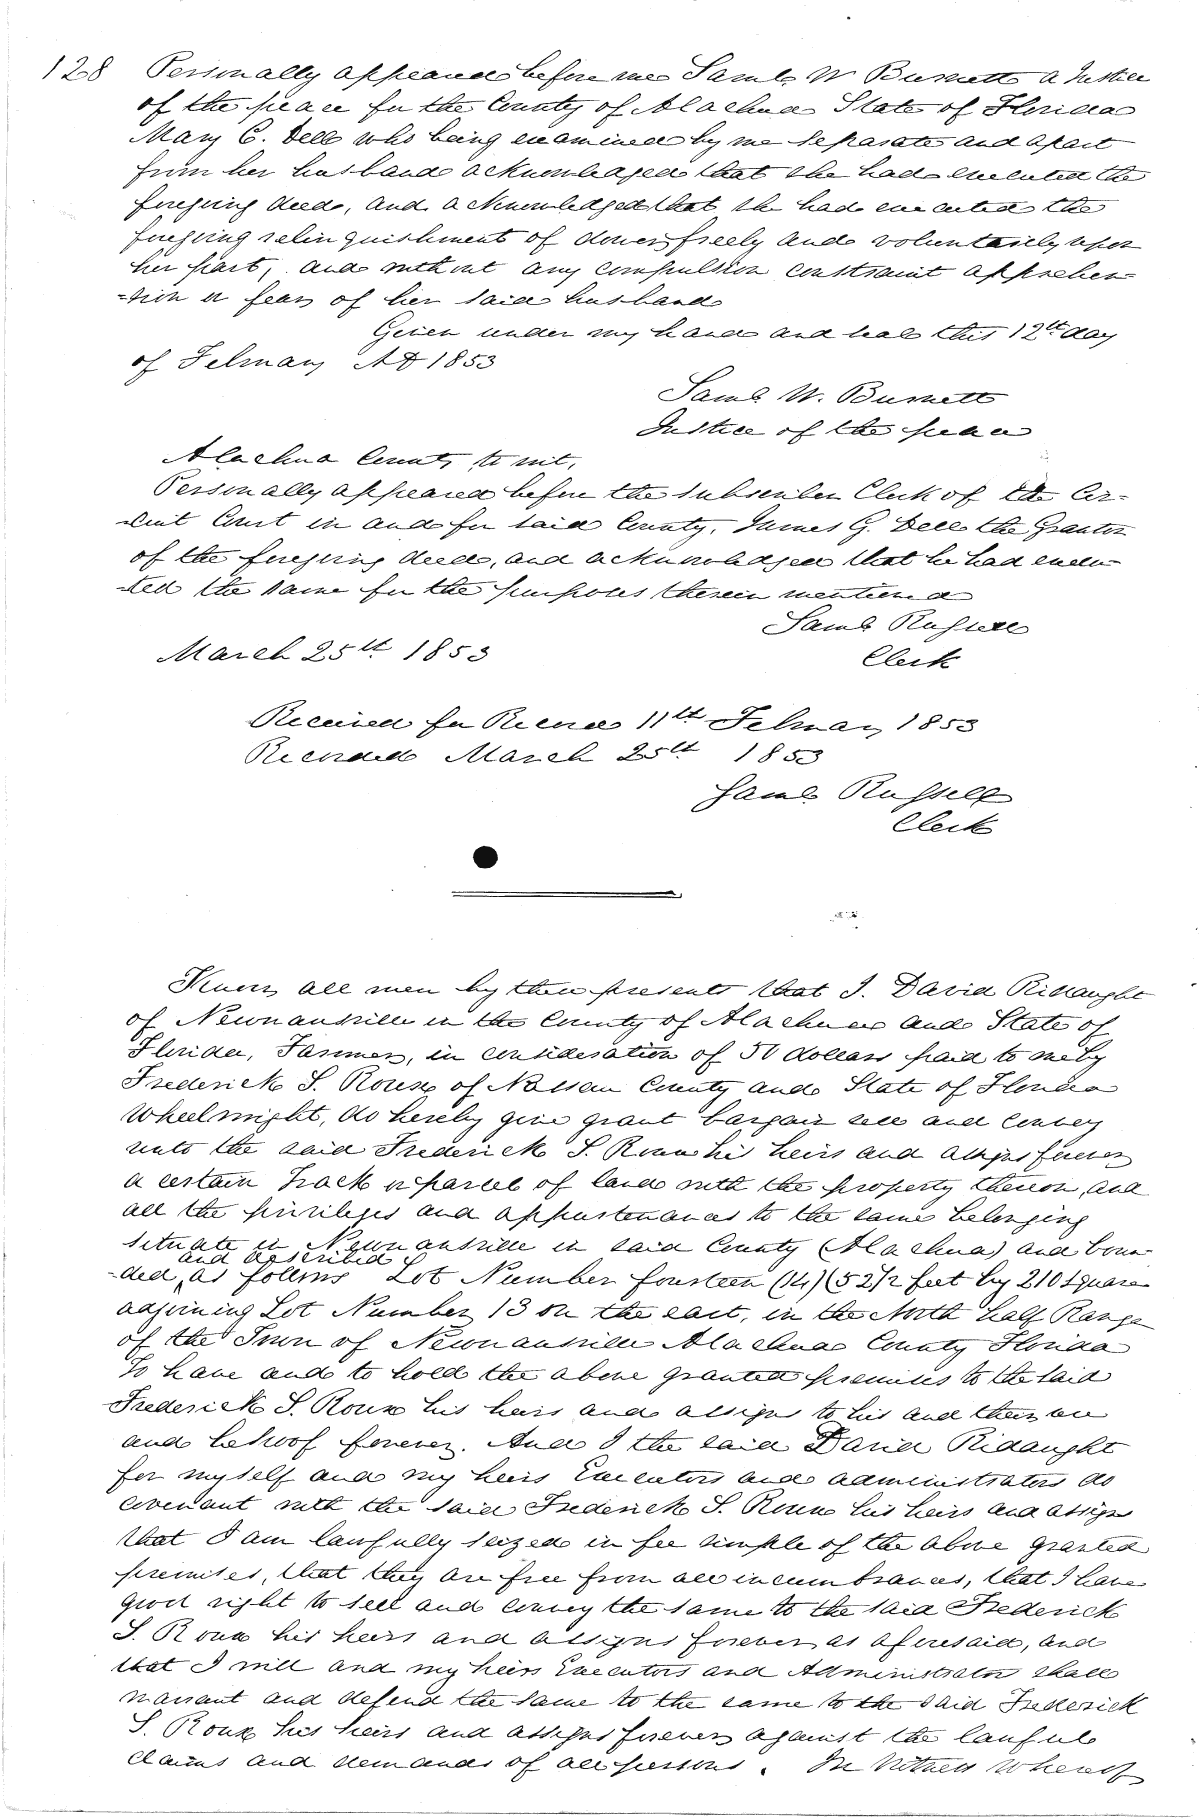 128 Personally appeared before me Saml. W Burnett a Justice
of the peace for the County of Alachua State of Florida
Mary C. Dell who being examined by me separate and apart
from her husband acknowledged that she had executed the
foregoing deed, and acknowledged that she had executed the
foregoing relinquishment of dower freely and voluntarily upon
her part, and without any compulsion constraint apprehen-
-sion or fear of her said husband
Given under my hand and seal this 12th day
of February AD 1853
Saml. W. Burnett
Justice of the peace
Alachua County to wit,
Personally appeared before the subscriber Clerk of the Cir-
-cuit Court in and for said County, James G. Dell the Grantor
of the foregoing deed, and acknowledged that he had execu-
-ted the same for the purposes therein mentioned
Saml Russell
March 25th 1853
Clerk
Received for Record 11th February 1853
Recorded March 25th 1853
Saml Russell
Clerk
Know all men by these presents that I. David Ridaught
of Newnansville in the County of Alachua and State of
Florida, Farmer, in consideration of 50 dollars paid to me by
Frederick S. Roux of Nassau County and State of Florida
Wheelwright, do hereby give grant bargain sell and convey
unto the said Frederick S. Roux his heirs and assigns forever
a certain Track or parcel of land with the property thereon, and
all the privileges and appurtenances to the same belonging
situate in Newnansville in said County (Alachua) and boun-
and described
-ded, as follows Lot Number fourteen (14) (52 1/2 feet by 210 square
adjoining Lot Number 13 on the east, in the North half Range
of the Town of Newnansville Alachua County Florida
To have and to hold the above granted premises to the said
Frederick S. Roux his heirs and assigns to his and their use
and behoof forever. And I the said David Ridaught
for myself and my heirs Executors and administrators do
covenant with the said Frederick S. Roux his heirs and assigns
that I am lawfully seized in fee simple of the above granted
premises, that they are free from all incumbrances, that I have
good right to sell and convey the same to the said Frederick
S. Roux his heirs and assigns forever as aforesaid, and
that I will and my heirs Executors and Administrators shall
warrant and defend the same to the same to the said Frederick
S. Roux his heirs and assigns forever against the lawful
claims and demands of all persons. In Witness Whereof